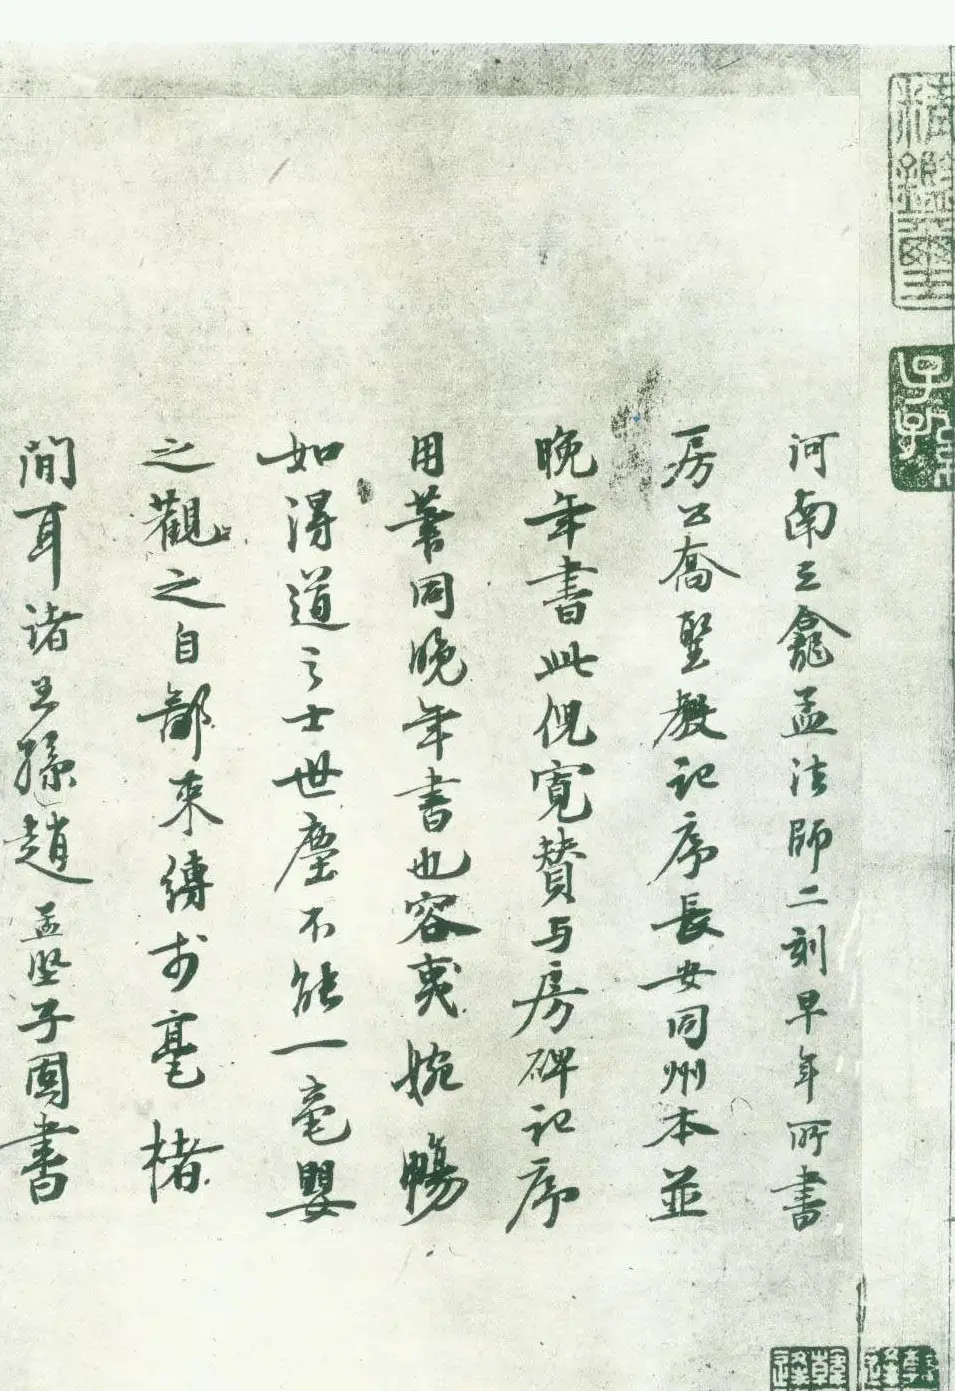 河南三龕孟法師二刻早年所書
房公喬聖教記序長安同州本並
晚年書此倪寛賛与房碑記序
用筆同晚年書也容夷婉暢
如得道之士世塵不能一毫嬰
之觀之自鄙束縛於毫楮
間耳諸王孫趙孟堅子固書
精鑒璽
子孫